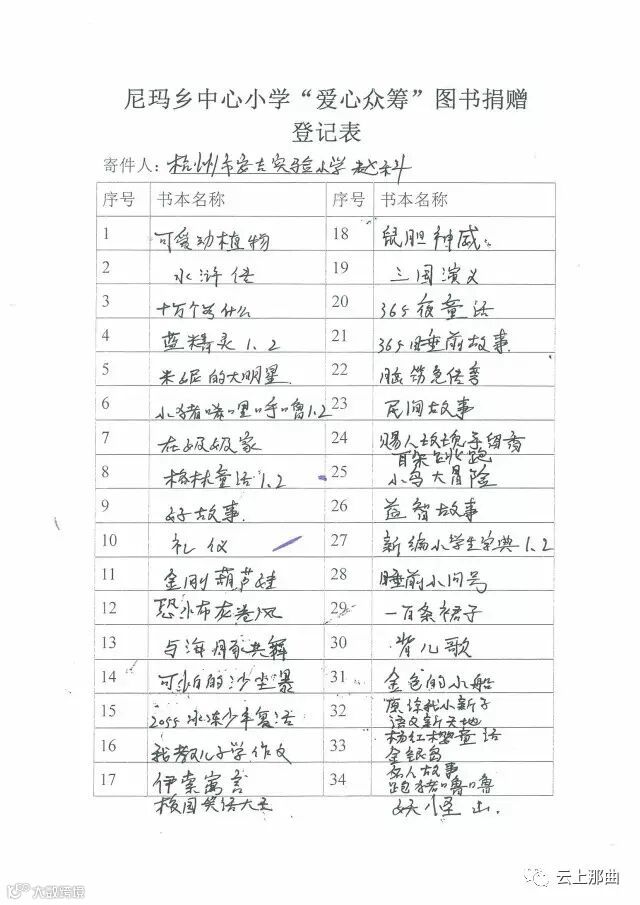 尼玛乡中心小学“爱心众筹”图书捐赠
登记表
寄件人：杭州市安吉实验小学 赵科
序号 书本名称 序号 书本名称
1 可爱动植物 18 鼠胆神威。
2 水浒传 19 三国演义
3 十万个为什么 20 365夜童话
4 蓝精灵1.2 21 365睡前故事.
5 米妮的大明星. 22 脑筋急转弯
6 小猪唏哩呼噜1.2 23 民间故事
7 在奶奶家 24
8 格林童话1.2 25 小鸟大冒险
9 好故事. 26 益智故事
10 礼仪 27 新编小学生字典1.2
11 金刚葫芦娃 28 睡前小问号
12 恐怖龙卷风 29 一百条裙子
13 与海豚共舞 30 背儿歌
14 可怕的沙尘暴 31 金色的小船
15 冰冻少年复活 32
语文新天地
16 我教儿子学作文 33 杨红樱童话
金银岛
17 伊索寓言 34 名人故事
校园笑话大王 跑猪噜噜
妖怪山.
大数跨境
云上那曲